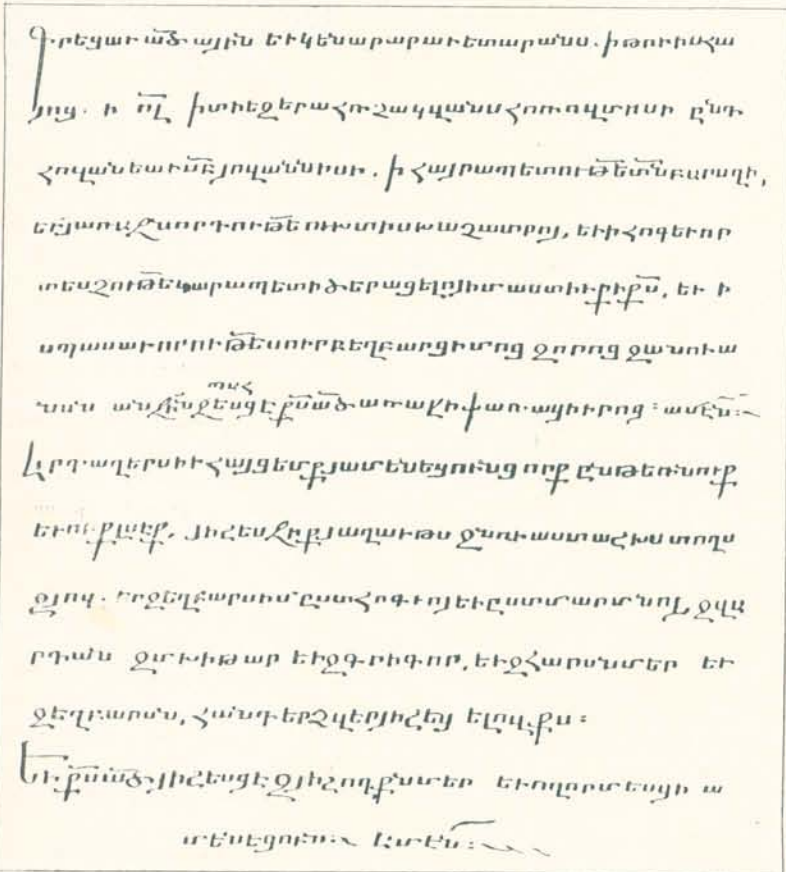 Գրեցաւ ած ային եւ կենարարաւետարանս. ի թուիս Հա
յոց. ի ՈԼ ի տիեզերահռչակ վանս Հոռովմոսի ընդ
հովանեաւ սբ Յովաննիսի. ի հայրապետութե տն Բարսղի,
եւ յառաջնորդութե ուստիս Խաչատրոյ, եւ ի հոգեւոր
տեսչութե կարապետի ծերացելոյ իմաստիւք ի քս, եւ ի
սպասաւորութե սուրբ եղբարց իմոց զորոց զանուա
նսն անջինջ պահեսցէ քս ած առաջի փառաց իւրոց: ամէն:
Արդ աղերսիւ հայցեմք յամենեցունց որք ընթեռնուք
եւ ուսանիք, յիշեսջիք յաղաւթս զնուաստ ահխս տողս
զյով. եւ զեղբարս իմ ըստ հոգւոյ եւ ըստ մարմնոյ, զվա
րդան զմխիթար եւ զգրիգոր, եւ զհարսն մեր եւ
զեղբարսն, հանդերձ վերյիշեցելովքս:
Եւ քս ած յիշեսցէ զյիշողքս մեր եւ ողորմեսցի ա
մենեցուն: Ամէն: